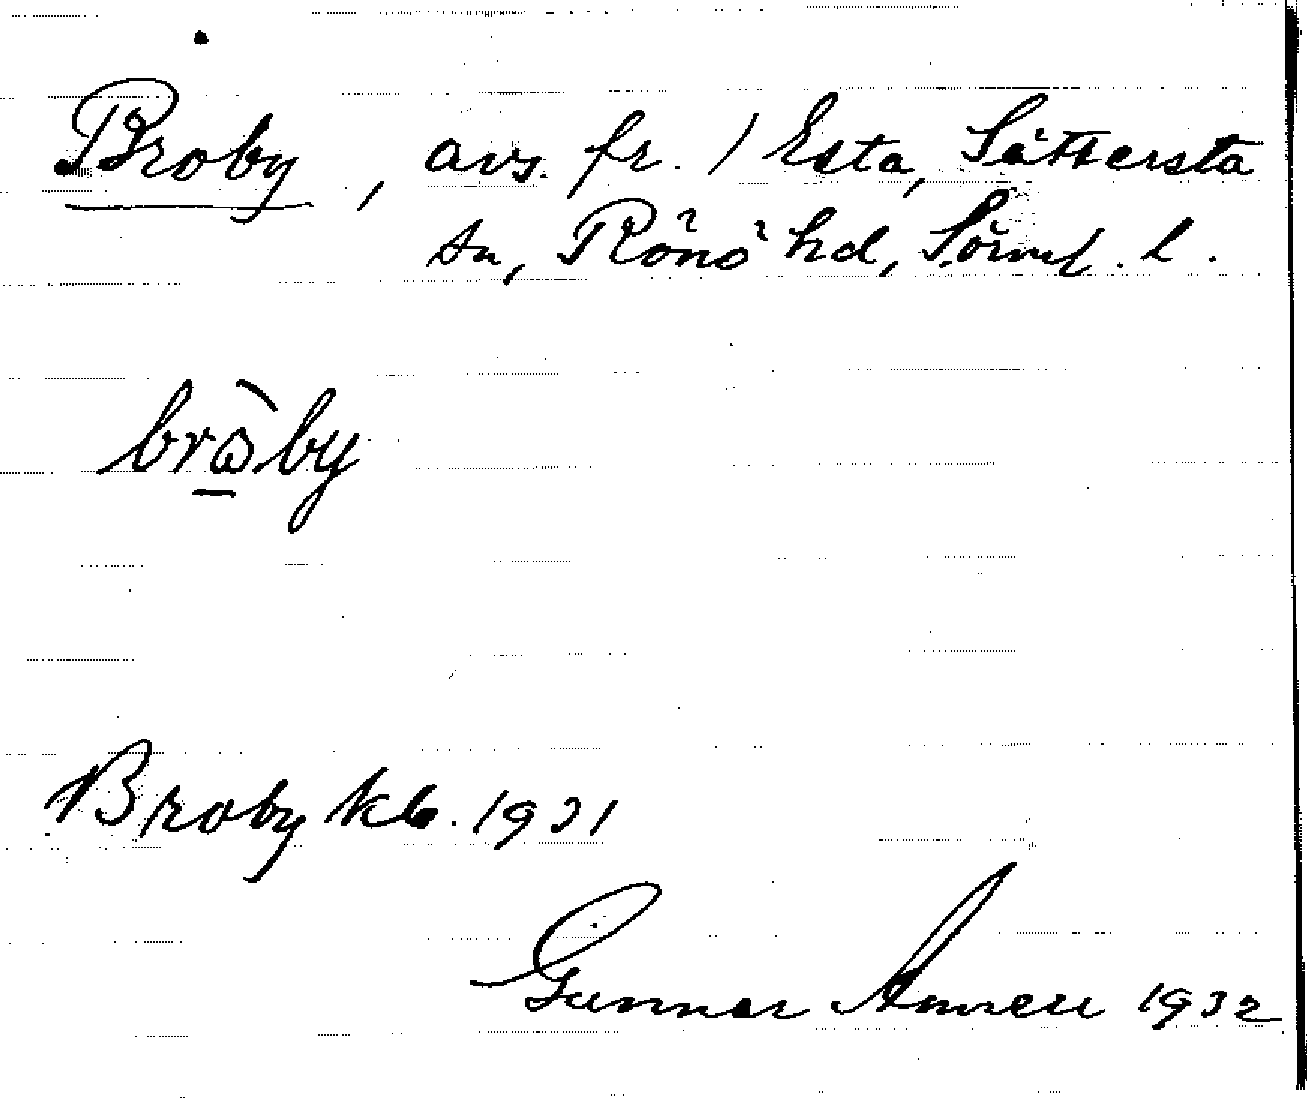 Broby, avs. fr. 1 Esta, Sättersta
sn, Rönö hd, Sörml. l.
bròby
Broby kb. 1931
Gunnar Amneu 1932